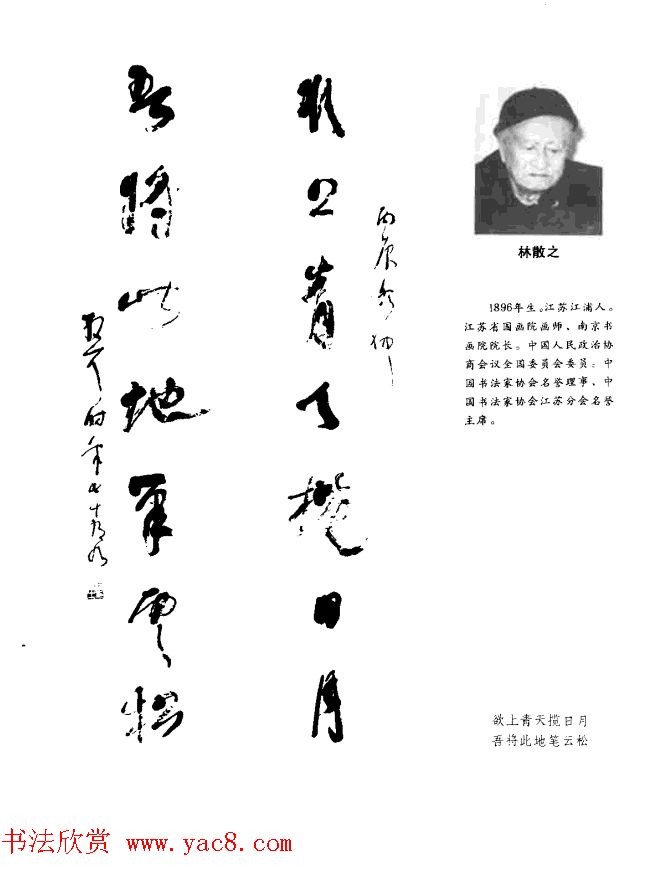 欲上青天攬日月
吾將此地筆雲松
時年七十有九
林散之
1896年生。江苏江浦人。
江苏省国画院画师、南京书
画院院长。中国人民政治协
商会议全国委员会委员；中
国书法家协会名誉理事、中
国书法家协会江苏分会名誉
主席。
欲上青天揽日月
吾将此地笔云松
书法欣赏 www.yac8.com